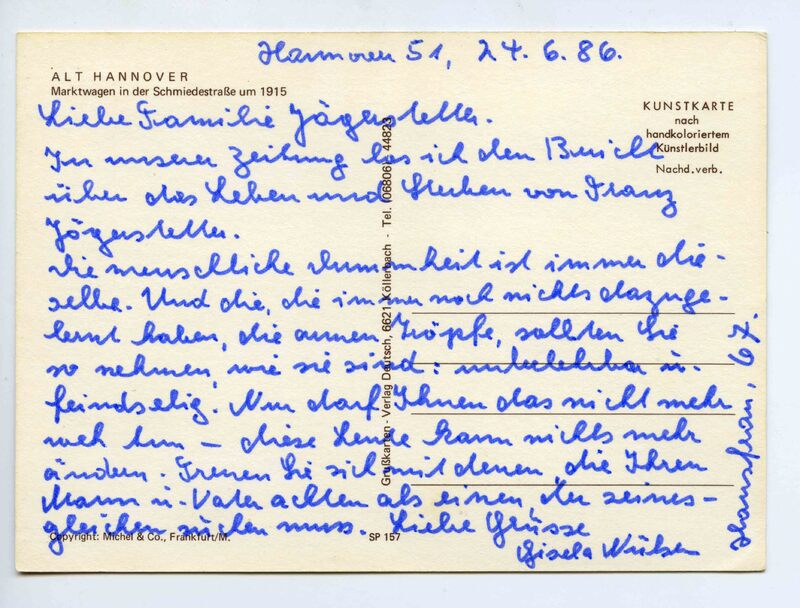 Hannover 51, 24. 6. 86.
ALT HANNOVER
Marktwagen in der Schmiedestraße um 1915
KUNSTKARTE
nach
handkoloriertem
Künstlerbild
Nachd. verb.
Liebe Familie Jägerstetter.
In unserer Zeitung las ich den Bericht
über das Leben und Sterben von Franz
Jägerstetter.
Die menschliche Dummheit ist immer die-
selbe. Und die, die immer noch nichts dazuge-
lernt haben, die armen Tröpfe, sollten Sie
so nehmen, wie sie sind: unbelehrbar u.
feindselig. Nur darf Ihnen das nicht mehr
weh tun – diese Leute kann nichts mehr
ändern. Freuen Sie sich mit denen, die Ihren
Mann u. Vater achten als einen, der seines-
gleichen suchen muss. Liebe Grüsse
Gisela
Hausfrau, 67.
Großkarten - Verlag Deutsch, 6621 Köllerbach - Tel. (06806) 44823
Copyright: Michel & Co., Frankfurt/M.
SP 157